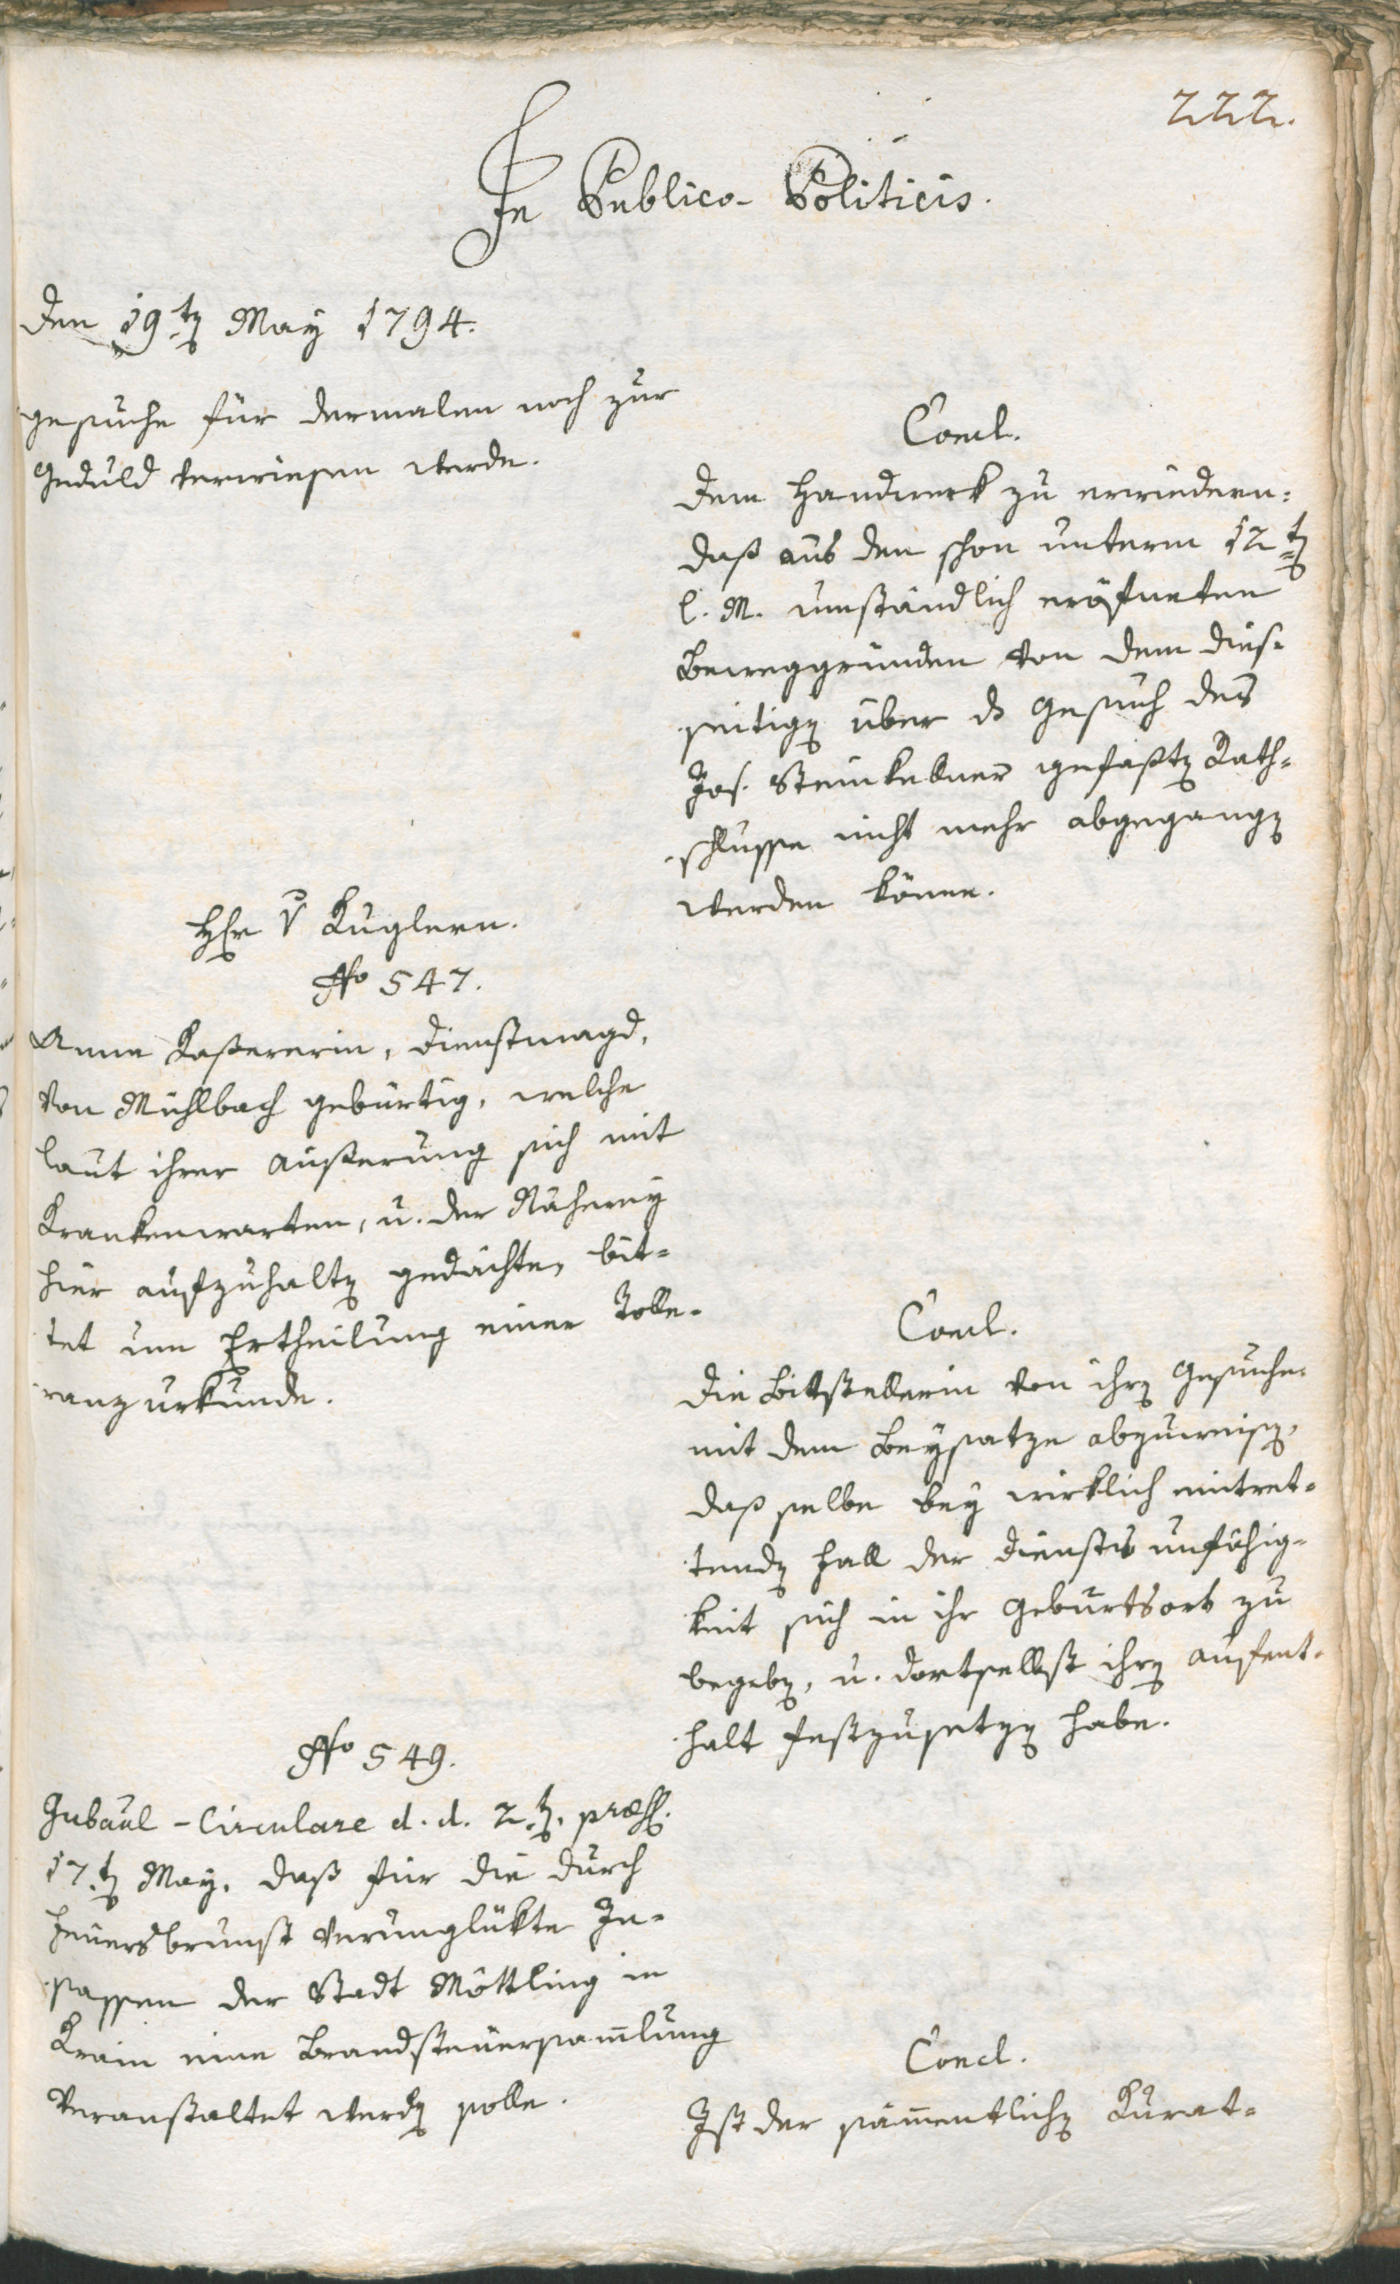 222.
In Publico-Politicis.
Den 19ten May 1794.
gesuche für dermalen noch zur
Geduld verwiesen werde.
Concl.
Dem Handwerk zu erwiedern:
daß aus den schon unterm 12ten
l. M. umständlich eröfneten
Beweggründen von dem dies-
seitigen über ds Gesuch des
Jos. Steinkellner gefaßten Rath-
schlusse nicht mehr abgegangen
werden könne.
Hr v Kuglern.
No 547.
Anna Kasererin, Dienstmagd,
von Mühlbach gebürtig, welche
laut ihrer Äußerung sich mit
Krankenwarten, u. der Näherey
hier aufzuhalten gedächte, bit-
tet um Ertheilung einer Tolle-
ranzurkunde.
Concl.
Die Bittstellerin von ihren Gesuche
mit dem Beysatze abzuweisen,
daß selbe bey wirklich eintret-
tenden Fall der Dienstesunfähig-
keit sich in ihr Geburtsort zu
begeben, u. dortselbst ihren Aufent-
halt festzusetzen habe.
No 549.
Gubaal-Circulare d. d. 2ten, præs.
17ten May, daß für die durch
Feuersbrunst verunglükte In-
sassen der Stadt Möttling in
Krain eine Brandsteuersam̄lung
veranstaltet werden solle.
Concl.
Ist der säm̄entlichen Kurat-